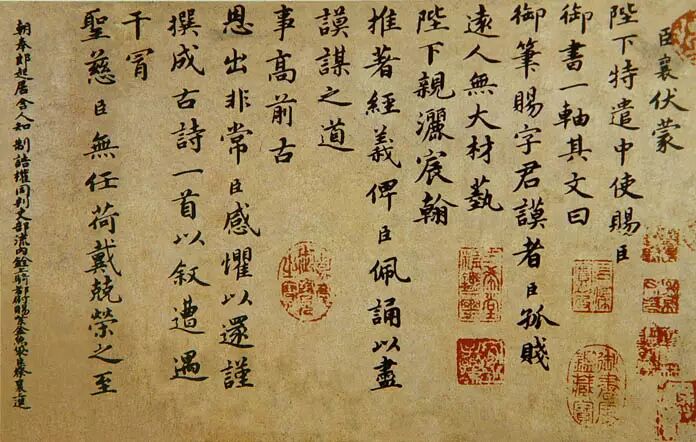 臣襄伏蒙
陛下特遣中使賜臣
御書一軸其文曰
御筆賜字君謨者臣孤賤
遠人無大材藝
陛下親灑宸翰
推著經義俾臣佩誦以盡
謨謀之道
事高前古
恩出非常臣感懼以還謹
撰成古詩一首以叙遭遇
干冒
聖慈臣無任荷戴兢榮之至
朝奉郎起居舍人知制誥權同判吏部流內銓上騎都尉賜紫金魚袋臣蔡襄上進
三希堂精鑑璽
宜子孫